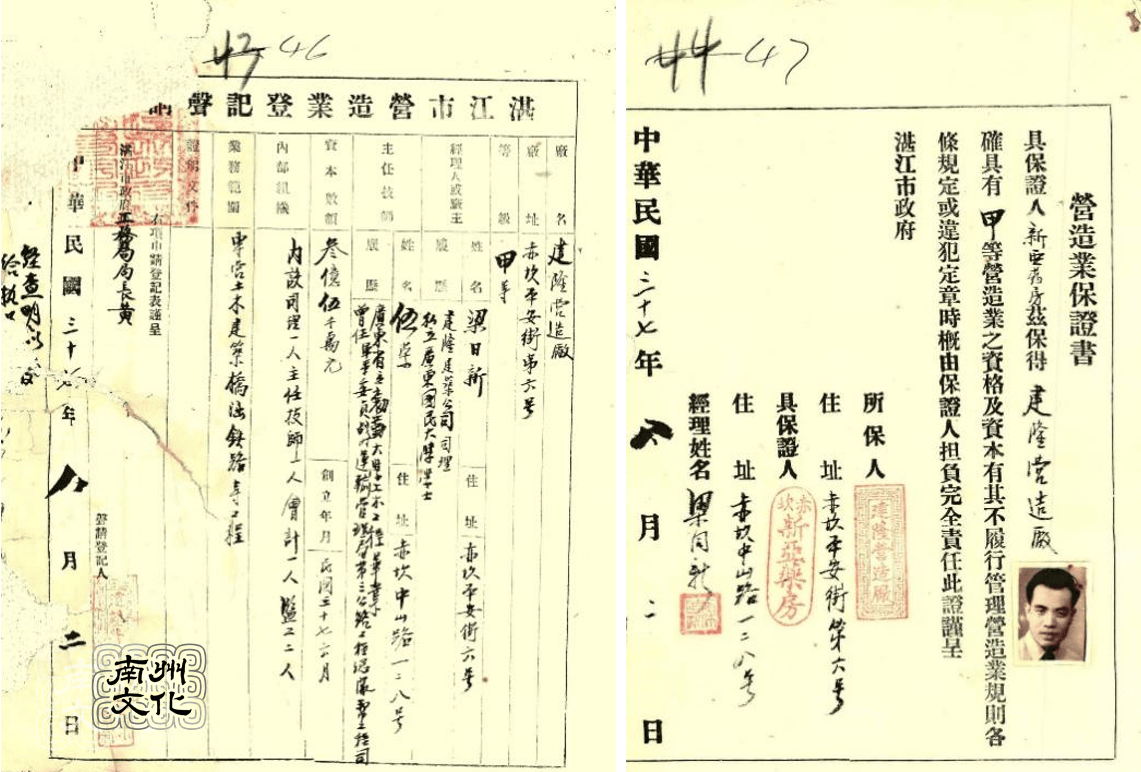 43 46
湛江市營造業登記聲請
廠名 建隆營造廠
廠址 赤坎平安街第六号
等級 甲等
經理人或廠主 姓名 梁日新 住址 赤坎平安街六号
履歷 建隆建築公司司理
私立廣東國民大學學士
主任技師 姓名 伍 住址 赤坎中山路一二八号
履歷 廣東省立勷勤大學土木工程畢業
資本數額 叁億伍千萬元 創立年月 民國三十七六月
內部組織 內設司理一人主任技師一人會計一人監工二人
業務範圍 專营土木建築橋樑鉄路等工程
證明文件
右項申請登記表謹呈
湛江市政府工務局局長黃
聲請登記人
中華民國三十七年八月二日
經查明
南州
文化
44 47
營造業保證書
具保證人新亞药房茲保得建隆营造廠
確具有甲等營造業之資格及資本有其不履行管理營造業規則各
條規定或違犯定章時概由保證人担負完全責任此證謹呈
湛江市政府
所保人 建隆營造廠
住址 赤坎平安街第六号
具保證人 赤坎新亞藥房
住址 赤坎中山路一二八号
經理姓名 梁
中華民國三十七年八月二日